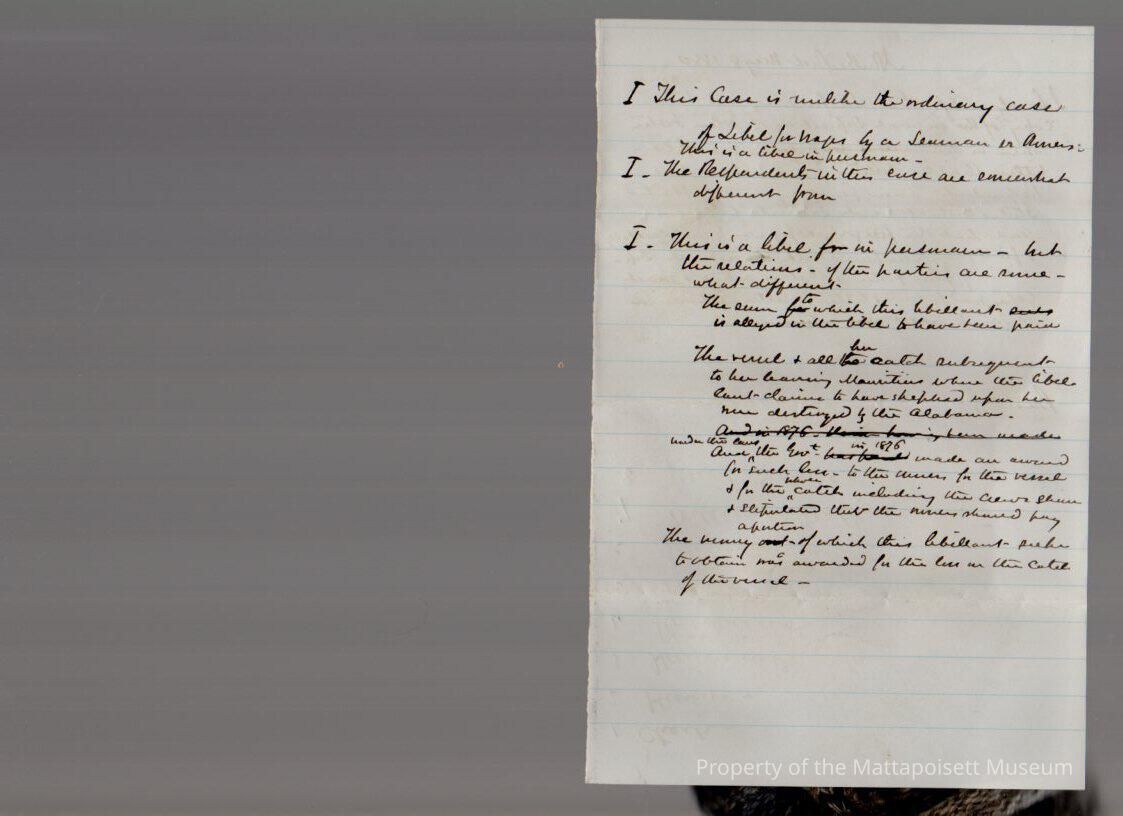 I This Case is unlike the ordinary case
of Libel for wages by a Seaman vs Owners:
This is a libel in personam -
I - The Respondents in this case are somewhat
different from
I - This is a libel for in personam - but
the relations - of the parties are some-
what different.
The sum for to which this libellant
is alleged in the libel to have been paid
The vessel & all the her catch subsequent
to her leaving Mauritius where the libel-
lant claims to have shipped upon her
were destroyed by the Alabama.
And in 1876 - been made
under the laws in 1876
And, the Govt. made an award
for such loss - to the owners for the vessel
& for the whole catch including the crews share
& stipulated that the owners should pay
a portion
The money out of which this libellant seeks
to obtain was awarded for the loss on the catch
of the vessel -
Property of the Mattapoisett Museum